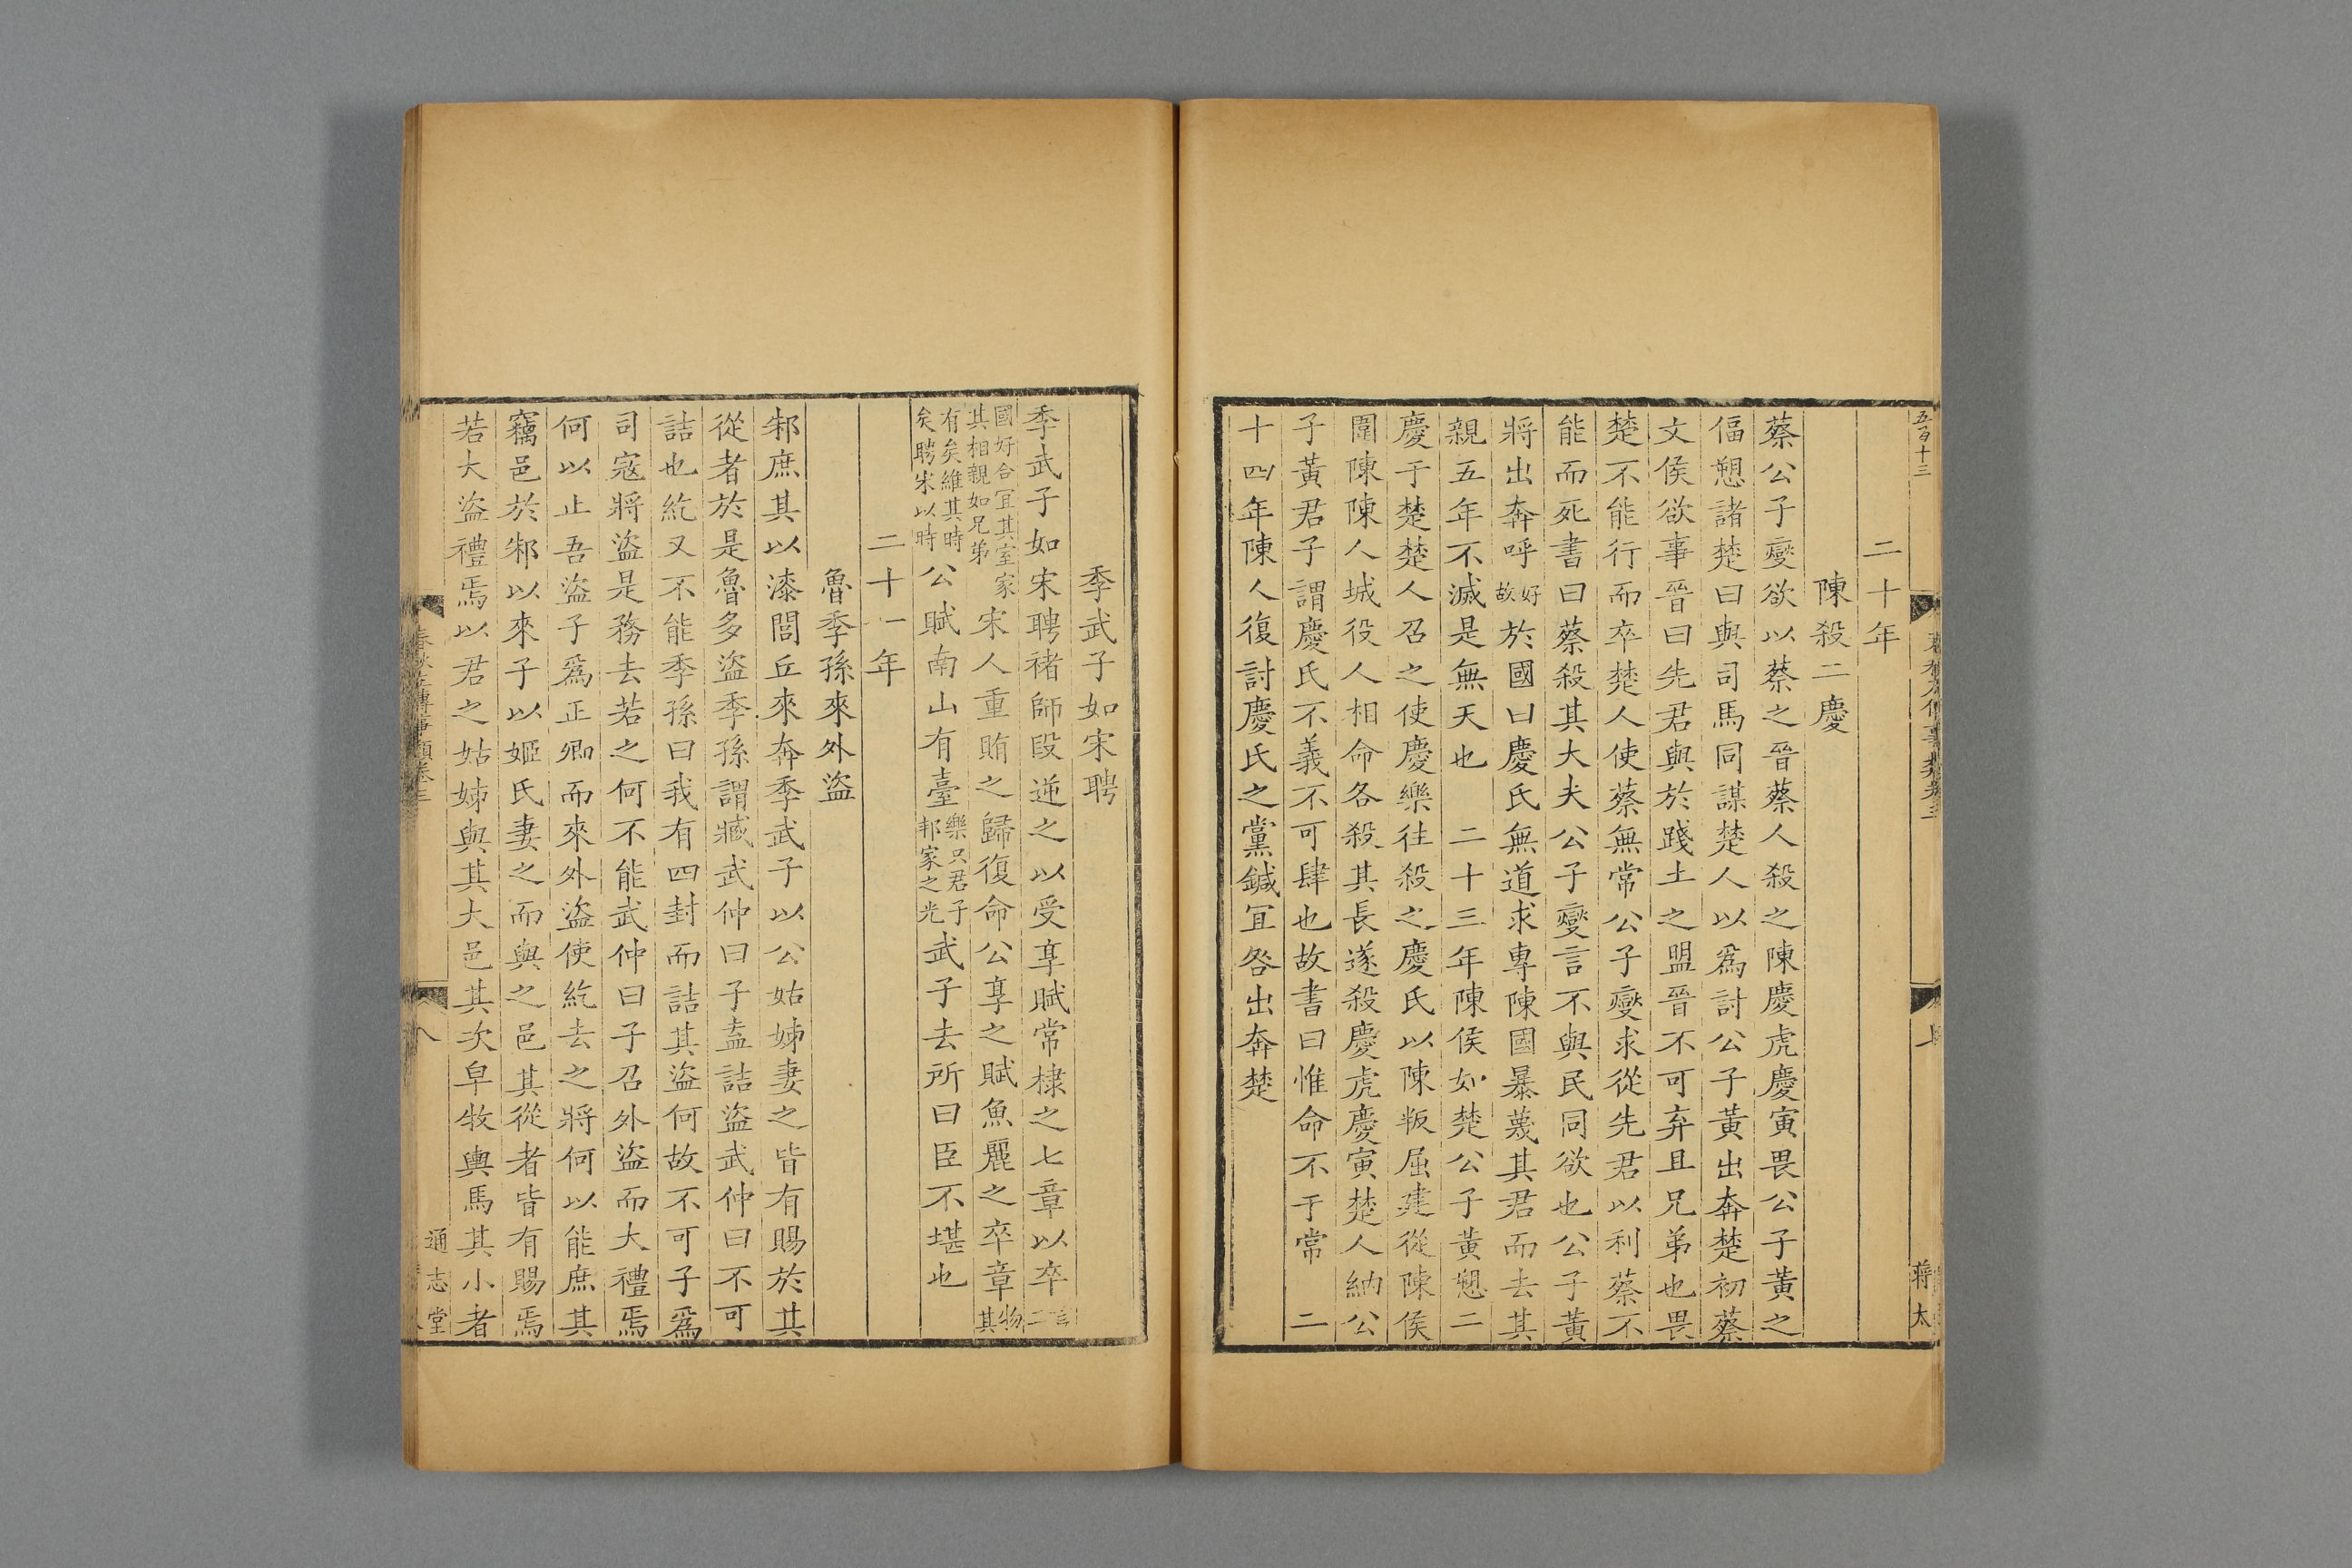 五百十三
蔣太
二十年
陳殺二慶
蔡公子燮欲以蔡之晉蔡人殺之陳慶虎慶寅畏公子黃之
偪愬諸楚曰與司馬同謀楚人以爲討公子黃出奔楚初蔡
文侯欲事晉曰先君與於踐土之盟晉不可弃且兄弟也畏
楚不能行而卒楚人使蔡無常公子燮求從先君以利蔡不
能而死書曰蔡殺其大夫公子燮言不與民同欲也公子黃
將出奔呼好故於國曰慶氏無道求專陳國暴蔑其君而去其
親五年不滅是無天也 二十三年陳侯如楚公子黃愬二
慶于楚楚人召之使慶樂往殺之慶氏以陳叛屈建從陳侯
圍陳陳人城役人相命各殺其長遂殺慶虎慶寅楚人納公
子黃君子謂慶氏不義不可肆也故書曰惟命不于常 二
十四年陳人復討慶氏之黨鍼宜咎出奔楚
季武子如宋聘
季武子如宋聘褚師段逆之以受享賦常棣之七章以卒言二
國好合宜其室家其相親如兄弟宋人重賄之歸復命公享之賦魚麗之卒章物其
有矣維其時矣聘宋以時公賦南山有臺樂只君子邦家之光武子去所曰臣不堪也
二十一年
魯季孫來外盜
邾庶其以漆閭丘來奔季武子以公姑姊妻之皆有賜於其
從者於是魯多盜季孫謂臧武仲曰子盍詰盜武仲曰不可
詰也紇又不能季孫曰我有四封而詰其盜何故不可子爲
司寇將盜是務去若之何不能武仲曰子召外盜而大禮焉
何以止吾盜子爲正卿而來外盜使紇去之將何以能庶其
竊邑於邾以來子以姬氏妻之而與之邑其從者皆有賜焉
若大盜禮焉以君之姑姊與其大邑其次皁牧輿馬其小者
春秋左傳事類卷三
八
通志堂